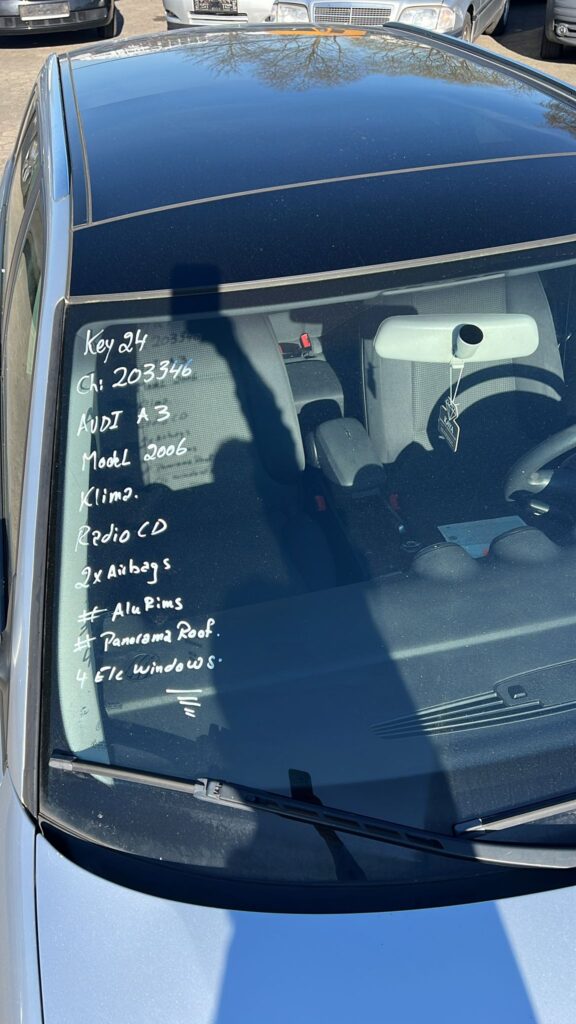 Key 24
Ch: 203346
AUDI A3
Model 2006
Klima.
Radio CD
2x Airbags
# Alu Rims
# Panorama Roof.
4 Elc windows.